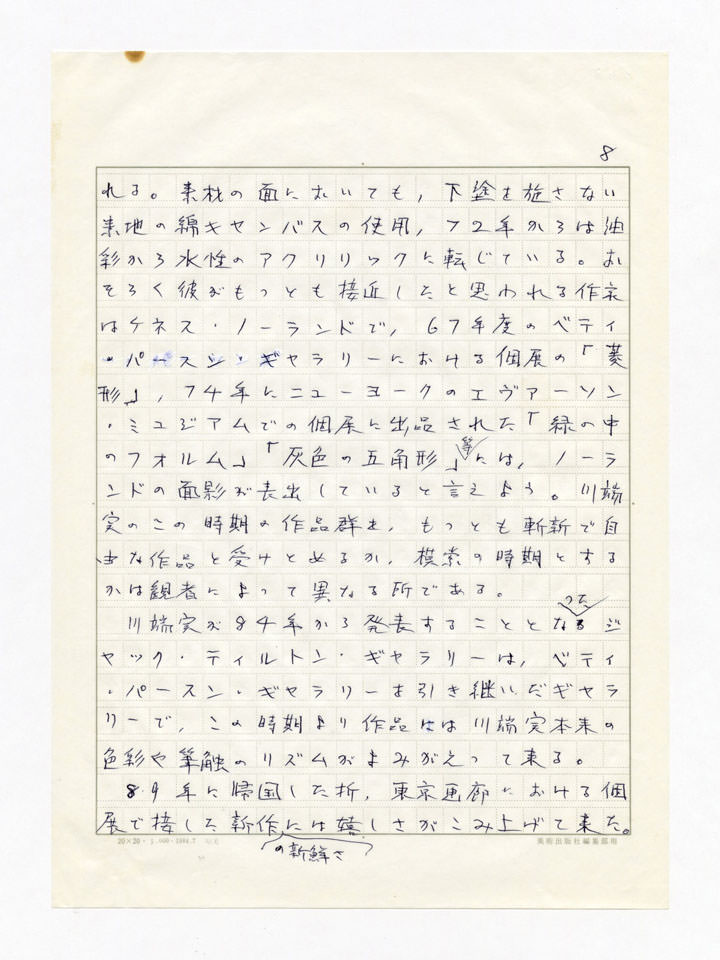 8
れる。素材の面においても，下塗を施さない
素地の綿キャンバスの使用，72年からは油
彩から水性のアクリリックに転じている。お
そらく彼がもっとも接近したと思われる作家
はケネス・ノーランドで，67年度のベティ
・パースン・ギャラリーにおける個展の「菱
形」，74年にニューヨークのエヴァーソン
・ミュジアムでの個展に出品された「緑の中
のフォルム」「灰色の五角形」等には，ノーラ
ンドの面影が表出していると言えよう。川端
実のこの時期の作品群を，もっとも斬新で自
由な作品と受けとめるか，模索の時期とする
かは観者によって異なる所である。
川端実が84年から発表することとなったジ
ャック・ティルトン・ギャラリーは，ベティ
・パースン・ギャラリーを引き継いだギャラ
リーで，この時期より作品はは川端実本来の
色彩や筆触のリズムがよみがえって来る。
89年に帰国した折，東京画廊における個
展で接した新作には嬉しさがこみ上げて来た。
の新鮮さ
20×20・1.000・1984.7
美術出版社編集部用